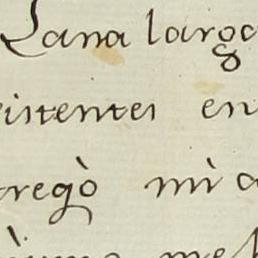 Lana larga
istentes en
regò mi a